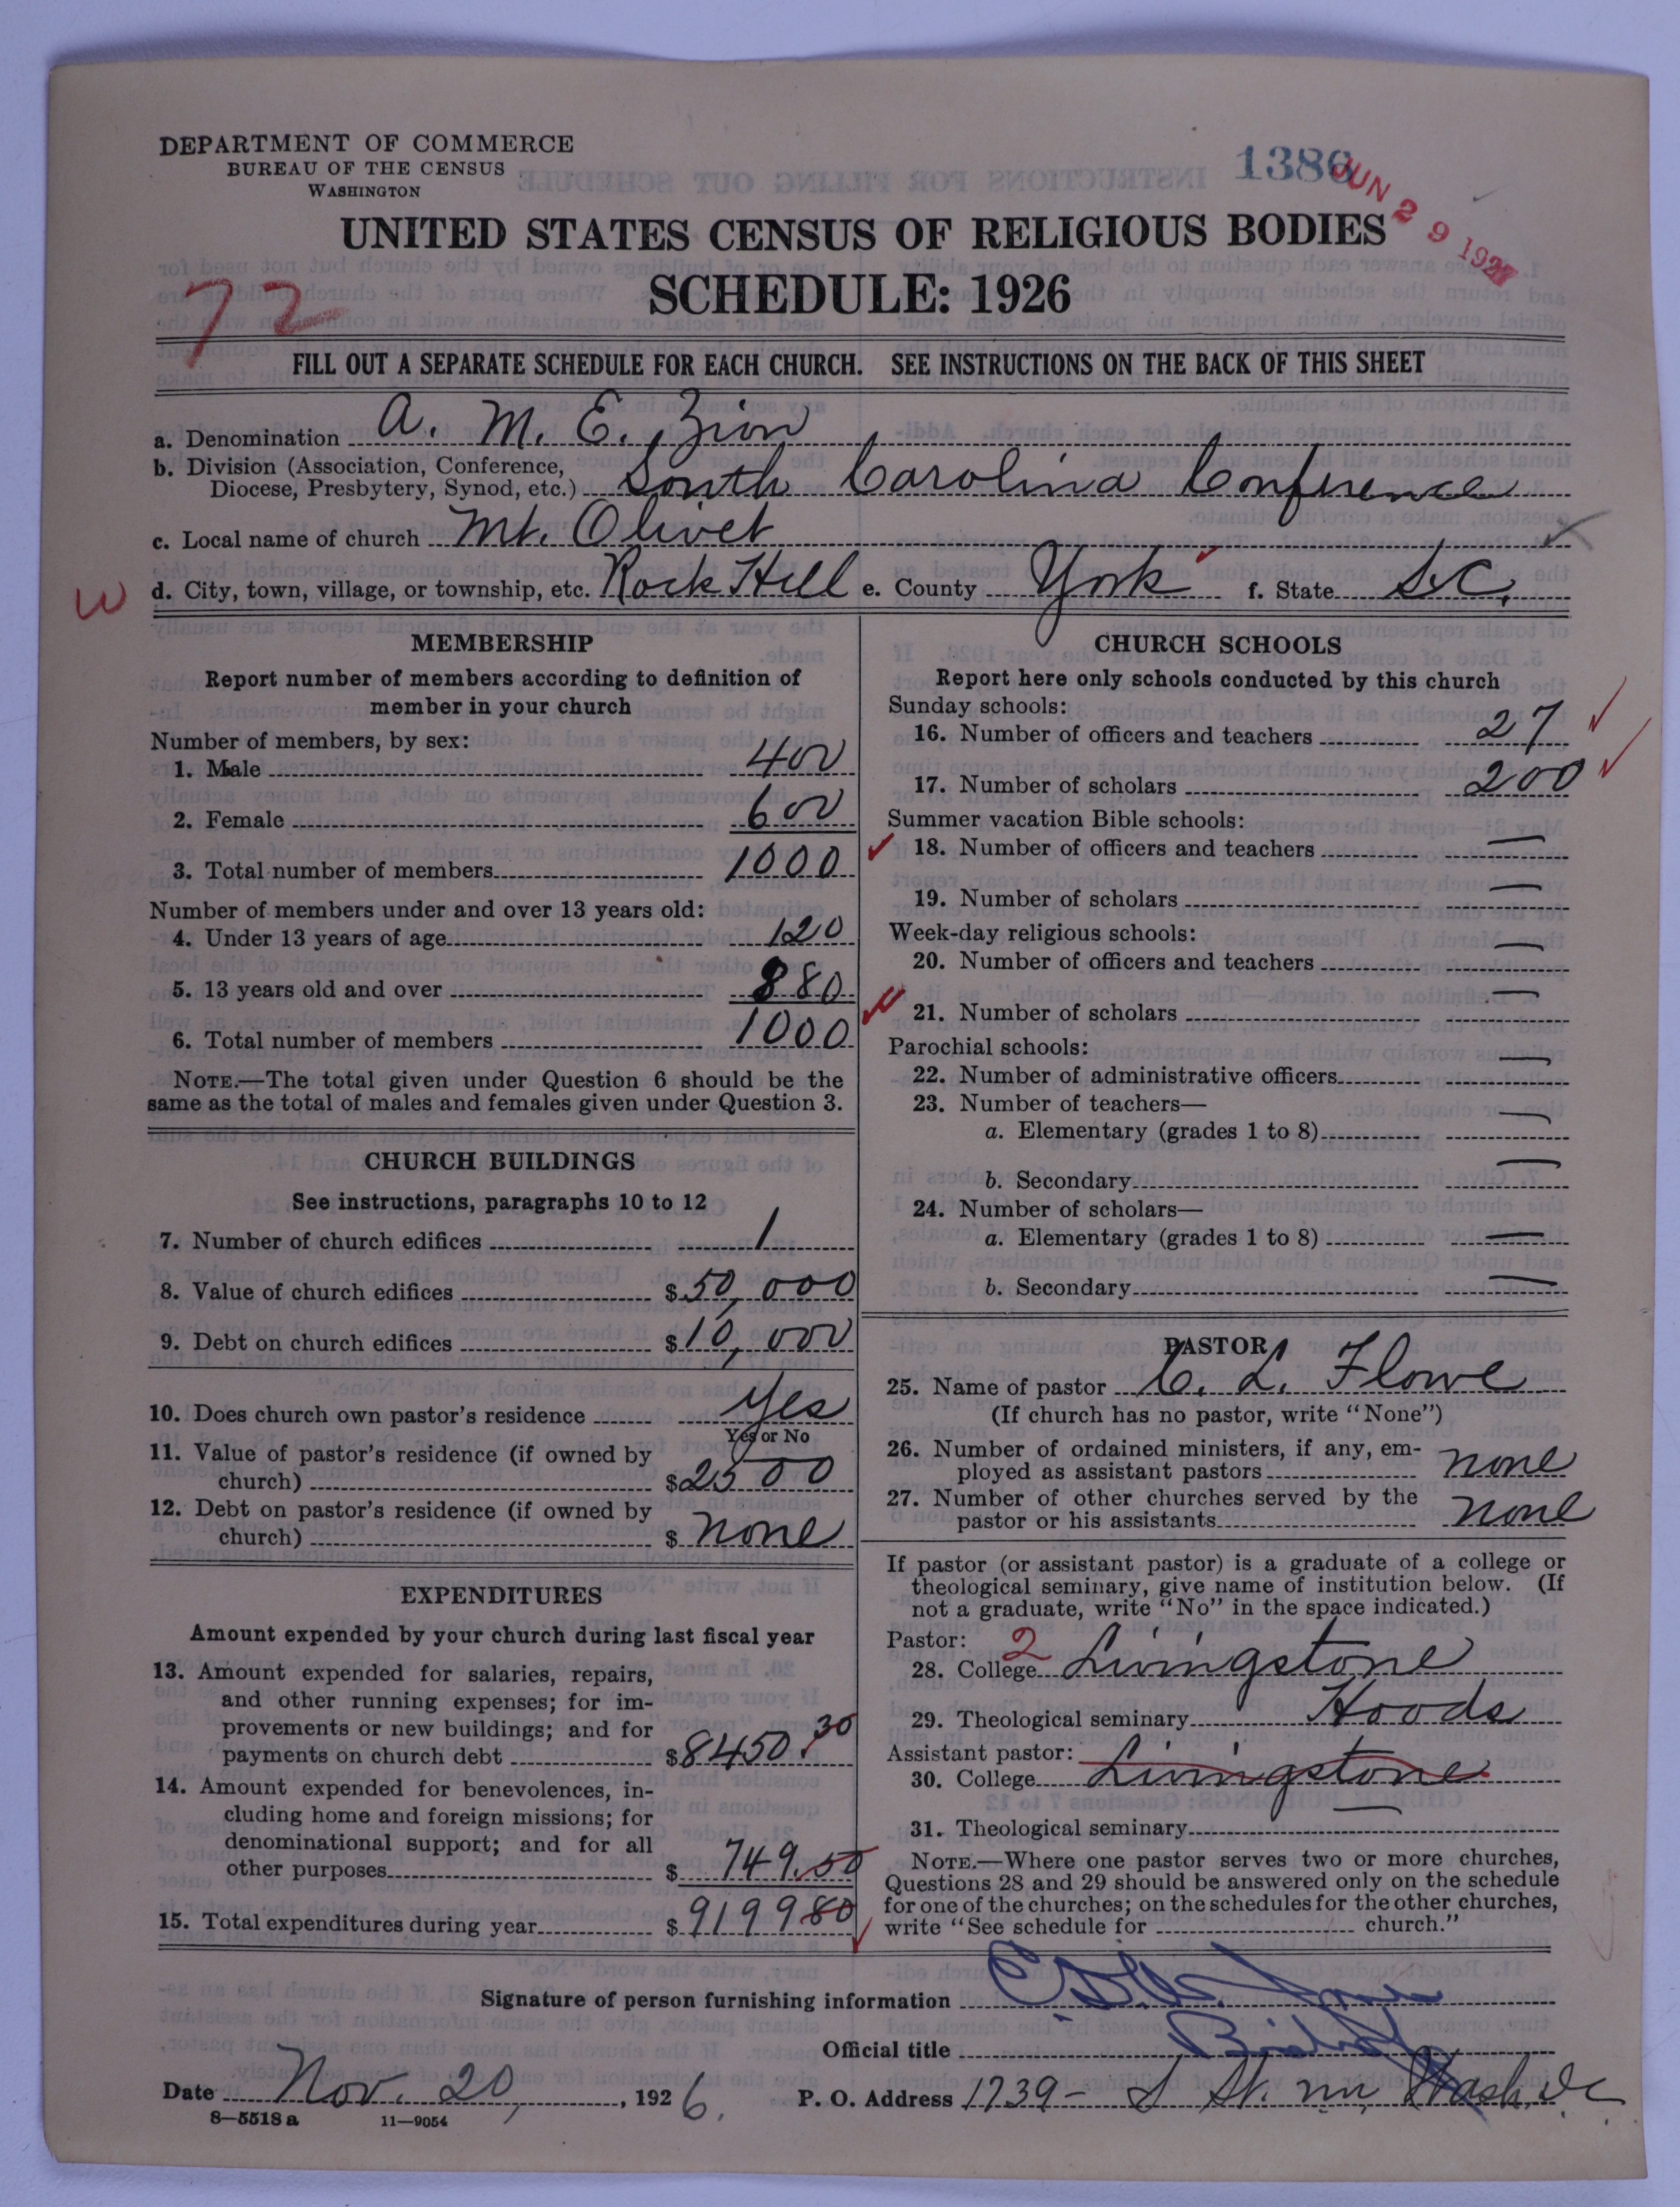 DEPARTMENT OF COMMERCE
BUREAU OF THE CENSUS
WASHINGTON
1386
JUN 29 1927
UNITED STATES CENSUS OF RELIGIOUS BODIES
SCHEDULE: 1926
72
FILL OUT A SEPARATE SCHEDULE FOR EACH CHURCH. SEE INSTRUCTIONS ON THE BACK OF THIS SHEET
a. Denomination A. M. E. Zion
b. Division (Association, Conference,
Diocese, Presbytery, Synod, etc.) South Carolina Conference
c. Local name of church Mt. Olivet
W d. City, town, village, or township, etc. Rock Hill e. County York f. State S.C.
MEMBERSHIP
Report number of members according to definition of
member in your church
Number of members, by sex:
1. Male 400
2. Female 600
3. Total number of members 1000
Number of members under and over 13 years old:
4. Under 13 years of age 120
5. 13 years old and over 880
6. Total number of members 1000
NOTE.—The total given under Question 6 should be the
same as the total of males and females given under Question 3.
CHURCH BUILDINGS
See instructions, paragraphs 10 to 12
7. Number of church edifices 1
8. Value of church edifices $50,000
9. Debt on church edifices $10,000
10. Does church own pastor's residence Yes
Yes or No
11. Value of pastor's residence (if owned by
church) $2500
12. Debt on pastor's residence (if owned by
church) $ none
EXPENDITURES
Amount expended by your church during last fiscal year
13. Amount expended for salaries, repairs,
and other running expenses; for im-
provements or new buildings; and for
payments on church debt $8450.30
14. Amount expended for benevolences, in-
cluding home and foreign missions; for
denominational support; and for all
other purposes $749.50
15. Total expenditures during year $919980
CHURCH SCHOOLS
Report here only schools conducted by this church
Sunday schools:
16. Number of officers and teachers 27
17. Number of scholars 200
Summer vacation Bible schools:
18. Number of officers and teachers —
19. Number of scholars —
Week-day religious schools:
20. Number of officers and teachers —
21. Number of scholars —
Parochial schools:
22. Number of administrative officers —
23. Number of teachers—
a. Elementary (grades 1 to 8) —
b. Secondary —
24. Number of scholars—
a. Elementary (grades 1 to 8) —
b. Secondary —
PASTOR
25. Name of pastor C. L. Flowe
(If church has no pastor, write "None")
26. Number of ordained ministers, if any, em-
ployed as assistant pastors none
27. Number of other churches served by the
pastor or his assistants none
If pastor (or assistant pastor) is a graduate of a college or
theological seminary, give name of institution below. (If
not a graduate, write "No" in the space indicated.)
Pastor: 2
28. College Livingstone
29. Theological seminary Hoods
Assistant pastor:
30. College Livingstone
31. Theological seminary —
NOTE.—Where one pastor serves two or more churches,
Questions 28 and 29 should be answered only on the schedule
for one of the churches; on the schedules for the other churches,
write "See schedule for church."
Signature of person furnishing information
Official title Bishop
Date Nov. 20, 1926. P. O. Address 1739- S St. nw Wash. DC
8—5518 a 11—9054